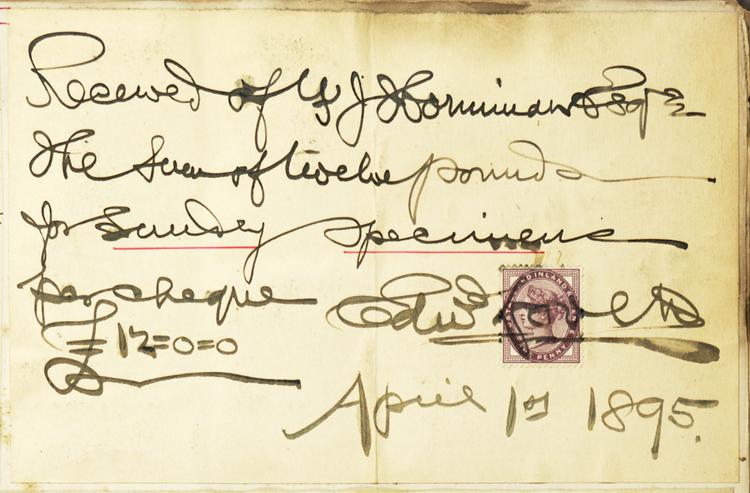 Received of F J Horniman Esqre
The Sum of twelve pounds
for Sundry Specimens
per cheque
Edwd
£12=0=0
April 1st 1895.
POSTAGE AND INLAND REVENUE
PENNY